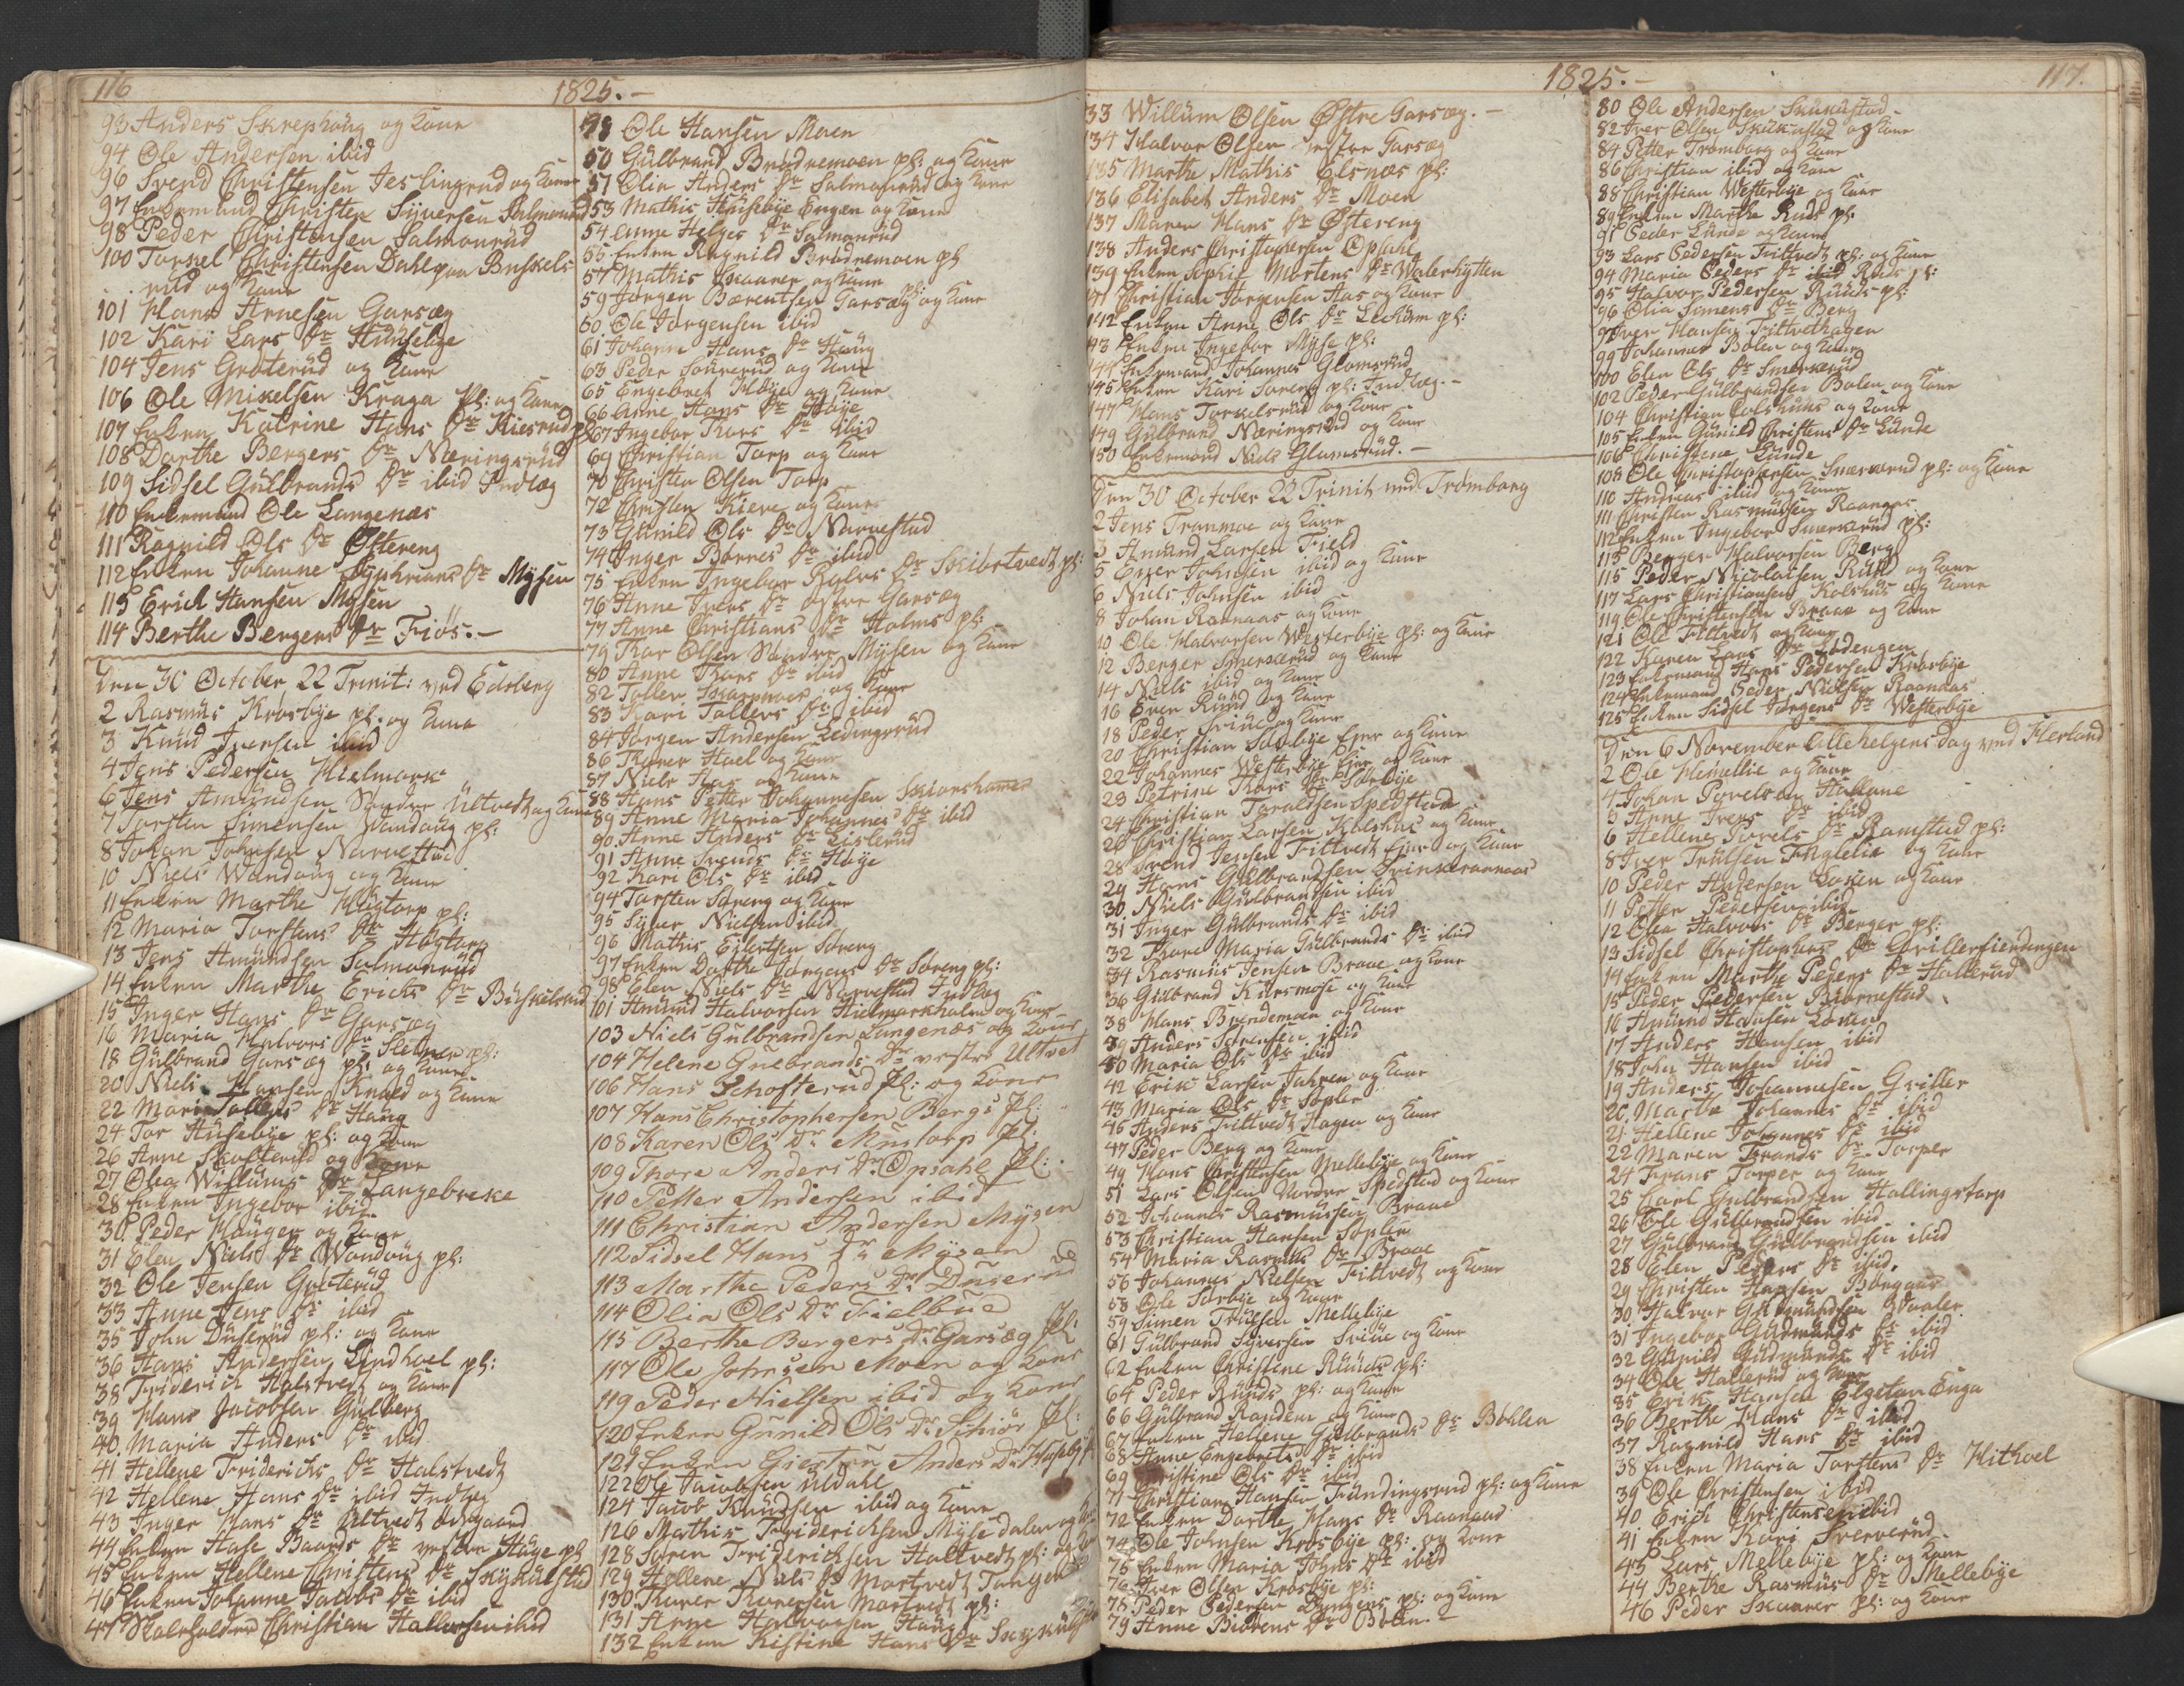 116
1825.-
93 Anders Skrephoug og Kone
94 Ole Andersen ibid
96 Svend Christensen Jeslingrud og Kone
97 Enkemand Christen Syversen Salmonrud
98 Peder Christensen Salmonrud
100 Torkel Christensen Dahl paa Buskels-
rud og Kone
101 Hans Arnesen Garsæg
102 Kari Lars Dr Huuselye
104 Jens Graterud og Kone
106 Ole Mikelsen Kraga pl: og Kone
107 Enken Katrine Hans Dr Kiesrud pl:
108 Dorthe Bergers Dr Næringsrüd
109 Sidsel Gülbrands Dr ibid Indlæg
110 Enkemand Ole Langenæs
111 Ragnild Ols Dr Østereng
112 Enken Johanne Dr Mysen
113 Erich Hansen Mysen
114 Berthe Bergers Dr Fiøs.-
Den 30 October 22 Trinit: ved Edsberg
2 Rasmus Krosbye pl: og Kone
3 Knud Iversen ibid
4 Jens Pedersen Hielmark
6 Jens Amundsen Søndre Ültvedt og Kone
7 Torsten Simensen Wandoug pl:
8 Johan Johnsen Narvestad
10 Niels Wandoug og Kone
11 Enken Marthe Mustorp pl:
12 Maria Torstens Dr Høytorp
13 Jens Amundsen Salmonrud
14 Enken Marthe Erichs Dr Büskülsrud
15 Inger Hans Dr Garsæg
16 Maria Halvors Dr pl:
18 Gülbrand Garsæg pl: og Kone
20 Niels Hansen Knold og Kone
22 Mari Tollefs Dr Haug
24 Tor Husebye pl: og Kone
26 Arne Skofterud og Kone
27 Olea Willums Dr Langebreke
28 Enken Ingebor ibid
30 Peder Hauger og Kone
31 Elen Niels Dr Wandoug pl:
32 Ole Jensen Graterüd
33 Anne Jens Dr ibid
35 John Düserüd pl: og Kone
36 Hans Andersen Lindhoel pl:
38 Friderich Halstvedt og Kone
39 Hans Jacobsen Gulberg
40 Maria Anders Dr ibid
41 Hellene Friderichs Dr Halstvedt
42 Hellene Hans Dr ibid Indlæg
43 Inger Hans Dr Ultvedt ødegaard
44 Enken Aase Baards Dr vestre Huge pl
45 Enken Hellene Christens Dr Skykülstad
46 Enken Johanne Jacobs Dr ibid
47 Skoleholder Christian Hallversen ibid
48 Ole Hansen Moen
50 Gulbrand Brødremoen pl: og Kone
51 Olia Anders Dr Salmonrud og Kone
53 Mathis Husebye Engen og Kone
54 Anne Helges Dr Salmonrüd
55 Enken Ragnild Brødremoen pl
57 Mathis Skaarer og Kone
59 Jørgen Bærentsen Garsæg pl: og Kone
60 Ole Jørgensen ibid
61 Johanne Hans Dr Haug
63 Peder Sonrerud og Kone
65 Engebret Høye og Kone
66 Anne Hans Dr Høye
67 Ingebor Thors Dr ibid
69 Christian Torp og Kone
70 Christen Olsen Torp
72 Christen Kiere og Kone
73 Gunild Ols Dr Narvestad
74 Inger Børres Dr ibid
75 Enken Ingebor Rolvs Dr Skibstvedt pl:
76 Anne Ivers Dr østre Garsæg
77 Anne Christians Dr Holms pl:
79 Thor Olsen Søndre Mysen og Kone
80 Anne Thors Dr ibid
82 Tollev Skarpnes og Kone
83 Kari Tollevs Dr ibid
84 Jørgen Andersen Ledingsrüd
86 Thorer Hoel og Kone
87 Niels Haa og Kone
88 Hans Petter Johannesen Skiørshammer
89 Anne Maria Johannes Dr ibid
90 Anne Anders Dr Lislerud
91 Anne Svends Dr Høye
92 Kari Ols Dr ibid
94 Torsten Søreng og Kone
95 Syver Nielsen ibid
96 Mathis Eilertsen Søreng
97 Enken Dorthe Jørgens Dr Søreng pl:
98 Elen Niels Dr Narvestad Indlæg
101 Amund Halvorsen Hielmarkholm og Kone
103 Niels Gulbrandsen Langenæs og Kone
104 Helene Gulbrands Dr vestre Ultvet
106 Hans Schofterud Pl: og Kone
107 Hans Christophersen Bergs Pl:
108 Karen Ols Dr Mustorp Pl:
109 Thore Anders Dr Opsahl Pl:
110 Petter Andersen ibid
111 Christian Andersen Mysen
112 Sidsel Hans Dr Mysen
113 Marthe Peders Dr Duserud
114 Olia Ols Dr Fielbue
115 Berthe Bergers Dr Garsæg Pl:
117 Ole Johnsen Moen og Kone
119 Peder Nielsen ibid og Kone
120 Enken Gunild Ols Dr Schiør Pl:
121 Enken Giertru Anders Dr Huseby
122 Ole Jacobsen Uldahl
124 Jacob Knudsen ibid og Kone
126 Mathis Friderichsen Myse dalen og
128 Søren Friderichsen Haltvedt pl: og
129 Hellene Niels Dr Mortvedt Tangen
130 Thorer Thoresen Mortvedt pl:
131 Anne Halvorsen Haug
132 Enken Kistine Hans Dr
1825.-
117.
33 Willum Olsen Østre Garsæg.-
134 Halvor Olsen Vestre Garsæg
135 Marthe Mathis Elsnæs pl:
136 Elisabet Anders Dr Moen
137 Maren Hans Dr Østereng
138 Anders Christophersen Opsahl
139 Enken Sophie Mortens Dr Walerhytten
141 Christian Jørgensen Aas og Kone
142 Enken Anne Ols Dr Lechum pl:
143 Enken Ingebor Myse pl:
144 Enkemand Johannes Glomsrüd
145 Enken Kari Søreng pl: Indlæg.-
147 Hans Torkelsrüd og Kone
149 Gulbrand Næringsrud og Kone
150 Enkemand Niels Glumsrüd.-
Den 30 October 22 Trinit ved Trømborg
2 Jens Tranmoe og Kone
3 Amund Larsen Field
5 Ever Johnsen ibid og Kone
6 Niels Johnsen ibid
8 Johan Raanaas og Kone
10 Ole Halvorsen Westerbye pl: og Kone
12 Berger Smerserüd og Kone
14 Niels ibid og Kone
16 Even Rund og Kone
18 Peder Sviue og Kone
20 Christian Sørbye Ejer og Kone
22 Johannes Westerbye Ejer og Kone
23 Petrine Thors Dr Sørbye
24 Christian Taraldsen Spedstad
26 Christian Larsen Kolshus og Kone
28 Svend Jensen Fittvedt Ejer og Kone
29 Hans Gulbrandsen Svinkeraanaas
30 Niels Gulbrandsen ibid
31 Inger Gulbrands Dr ibid
32 Thore Maria Gulbrands Dr ibid
34 Rasmus Jensen Braae og Kone
36 Gulbrand Kürsmose og Kone
38 Hans Brendemoen og Kone
39 Anders Sørensen ibid
40 Maria Ols Dr ibid
42 Erik Larsen Jahren og Kone
43 Maria Ols Dr Sopler
45 Anders Fittvedt Hagen og Kone
47 Peder Berg og Kone
49 Hans Christensen Mellebye og Kone
51 Lars Olsen Nordre Spedstad og Kone
52 Johannes Rasmussen Braae
53 Christian Hansen Sopler
54 Maria Rasmus Dr Braae
56 Johannes Nielsen Fittvedt og Kone
58 Ole Sørbye og Kone
59 Simen Truelsen Mellebye
61 Gülbrand Syversen Sviue og Kone
62 Enken Christine Ruuds pl:
64 Peder Ruuds pl: og Kone
66 Gulbrand Randem og Kone
67 Enken Hellene Gulbrands Dr Bøhlen
68 Anne Engebrets Dr ibid
69 Christine Ols Dr ibid
71 Christian Hansen Fundingsrud pl: og Kone
72 Enken Dorthe Hans Dr Raanaas
74 Ole Johnsen Krosbye pl: og Kone
75 Enken Maria Johns Dr ibid
76 Iver Olsen Krosbye pl:
78 Peder Pedersen pl: og Kone
79 Anne Biørens Dr Bølen.-
80 Ole Andersen Skukustad
82 Iver Olsen Skukustad og Kone
84 Petter Trømborg og Kone
86 Christian ibid og Kone
88 Christian Westerbye og Kone
89 Enken Marthe Ruds pl:
91 Peder Lunde og Kone
93 Lars Pedersen Fittvedt pl: og Kone
94 Maria Peders Dr Ruds pl:
95 Halvor Pedersen Ruuds pl:
96 Olia Simens Dr Berg
97 Iver Hansen Fittvethagen
99 Johannes Bølen og Kone
100 Elen Ols Dr Smerserüd
102 Peder Gulbrandsen Bølen og Kone
104 Christian Colshuus og Kone
105 Enken Gunild Christens Dr Lunde
106 Christene Lunde
108 Ole Christophersen Smerserud pl: og Kone
110 Andreas ibid og Kone
111 Christen Rasmussen Raanaas
112 Enken Ingebor Smerserud pl:
113 Berger Halvorsen Berg
115 Peder Nicolaisen Rud og Kone
117 Lars Christiansen Kolshus og Kone
119 Ole Christensen Braae og Kone
121 Ole Fittvedt og Kone
122 Karen Lars Dr Lødengen
123 Enkemand Hans Pedersen Krosbye
124 Enkemand Peder Nielsen Raanaas
125 Enken Sidsel Jørgens Dr Westerbye
Den 6 November Allehelgens dag ved Herland
2 Ole Hemellie og Kone
4 Johan Povelsen Hallane
5 Anne Ivers Dr ibid
6 Hellene Povels Dr Ramstad pl:
8 Iver Truelsen Fuglelie og Kone
10 Peder Andersen Løken og Kone
11 Petter Pedersen ibid
12 Olea Halvors Dr Berger pl:
13 Sidsel Christophers Dr Grillerfierdingen
14 Enken Marthe Peders Dr Hallerud
15 Peder Pedersen Biørnestad
16 Amund Hansen Løken
17 Anders Hansen ibid
18 John Hansen ibid
19 Anders Johannesen Griller
20 Marthe Johannes Dr ibid
21 Hellene Johannes Dr ibid
22 Maren Frands Dr Torper
24 Frans Torper og Kone
25 Carl Gulbrandsen Hallingstorp
26 Ole Gulbrandsen ibid
27 Gulbrand Gulbrandsen ibid
28 Elen Peders Dr ibid.
29 Christen Hansen Børgaas
30 Halvor Gudmundsen Waaler
31 Ingebor Gudmunds Dr ibid
32 Gunild Gudmunds Dr ibid
34 Ole Hallerud og Kone
35 Erik Hansen Elgetun Enga
36 Berthe Hans Dr ibid
37 Ragnild Hans Dr ibid
38 Enken Maria Torstens Dr Hithoel
39 Ole Christensen ibid
40 Erich Christensen ibid
41 Enken Kari Sververüd
43 Lars Mellebye pl: og Kone
44 Berthe Rasmus Dr Mellebye
46 Peder Skaarer pl: og Kone